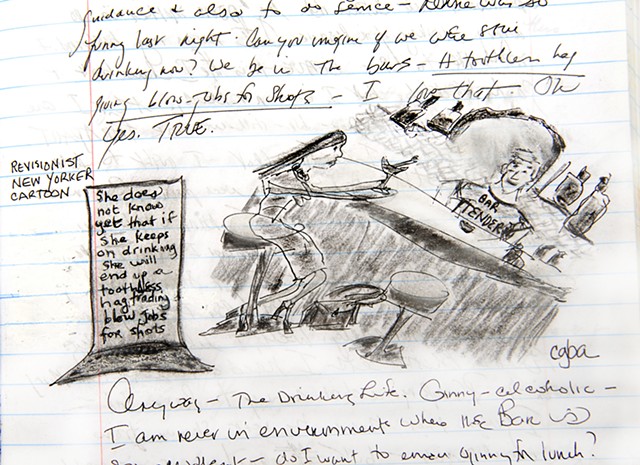 guidance & also to do service -
funny last night. Can you imagine if we were still
drinking now? We be in the bars - A toothless hag
giving blow-jobs for shots - I love that. Oh
Yes. TRUE.
REVISIONIST
NEW YORKER
CARTOON
She does
not know
yet that if
she keeps
on drinking
she will
end up a
toothless
hag trading
blow jobs
for shots
BAR
TENDER
cgba
Anyway - The Drinking Life. Ginny - alcoholic -
I am never in environments where the Bar is
do I want to email Ginny for lunch?